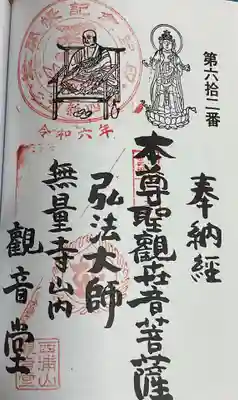 第六拾二番
奉納経
本尊聖觀世音菩薩
弘法大師
無量寺山内
觀音堂
令和六年